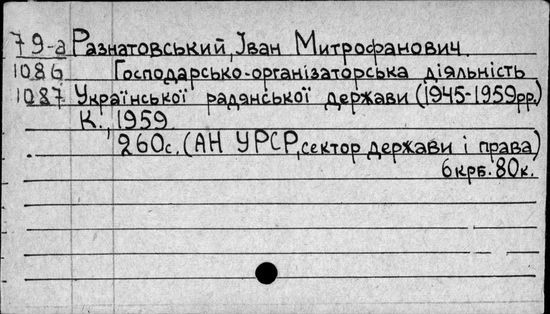 79-а Разнатовський, Іван Митрофанович.
1086 Господарсько-організаторська діяльність
1087 Української радянської держави (1945-1959рр.)
К., 1959.
260с. (АН УРСР, сектор держави і права)
6 крб. 80к.